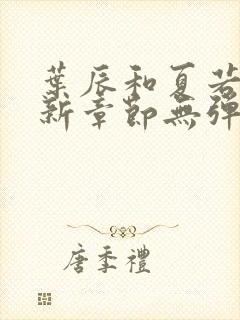 葉辰和夏若
新章節無彈
唐季禮